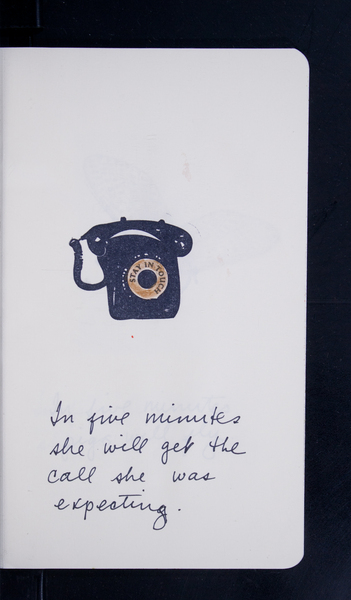 STAY IN TOUCH
In five minutes
she will get the
call she was
expecting.